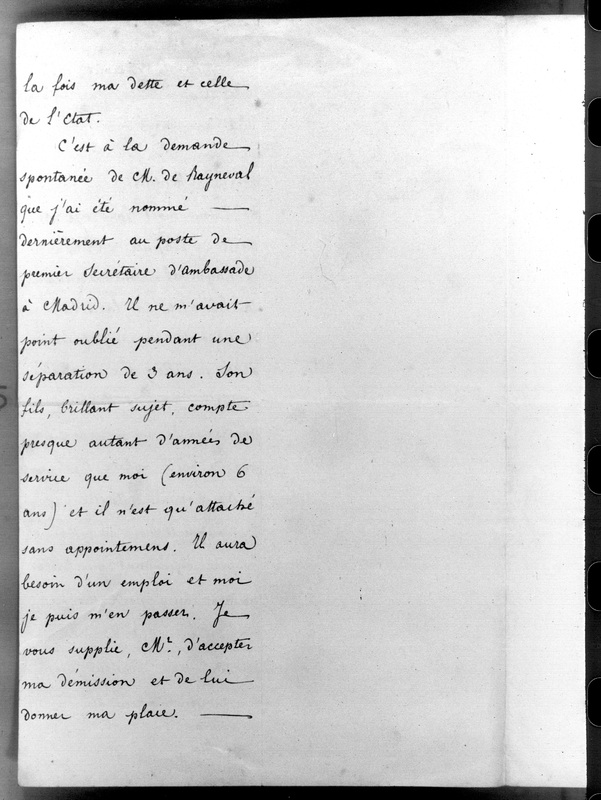 la fois ma dette et celle
de l'Etat.
C'est à la demande
spontanée de M. de Rayneval
que j'ai été nommé —
dernièrement au poste de
premier Secrétaire d'ambassade
à Madrid. Il ne m'avait
point oublié pendant une
séparation de 3 ans. Son
fils, brillant sujet, compte
presque autant d'années de
service que moi (environ 6
ans) et il n'est qu'attaché
sans appointemens. Il aura
besoin d'un emploi et moi
je puis m'en passer. Je
vous supplie, Mr., d'accepter
ma démission et de lui
donner ma place. —